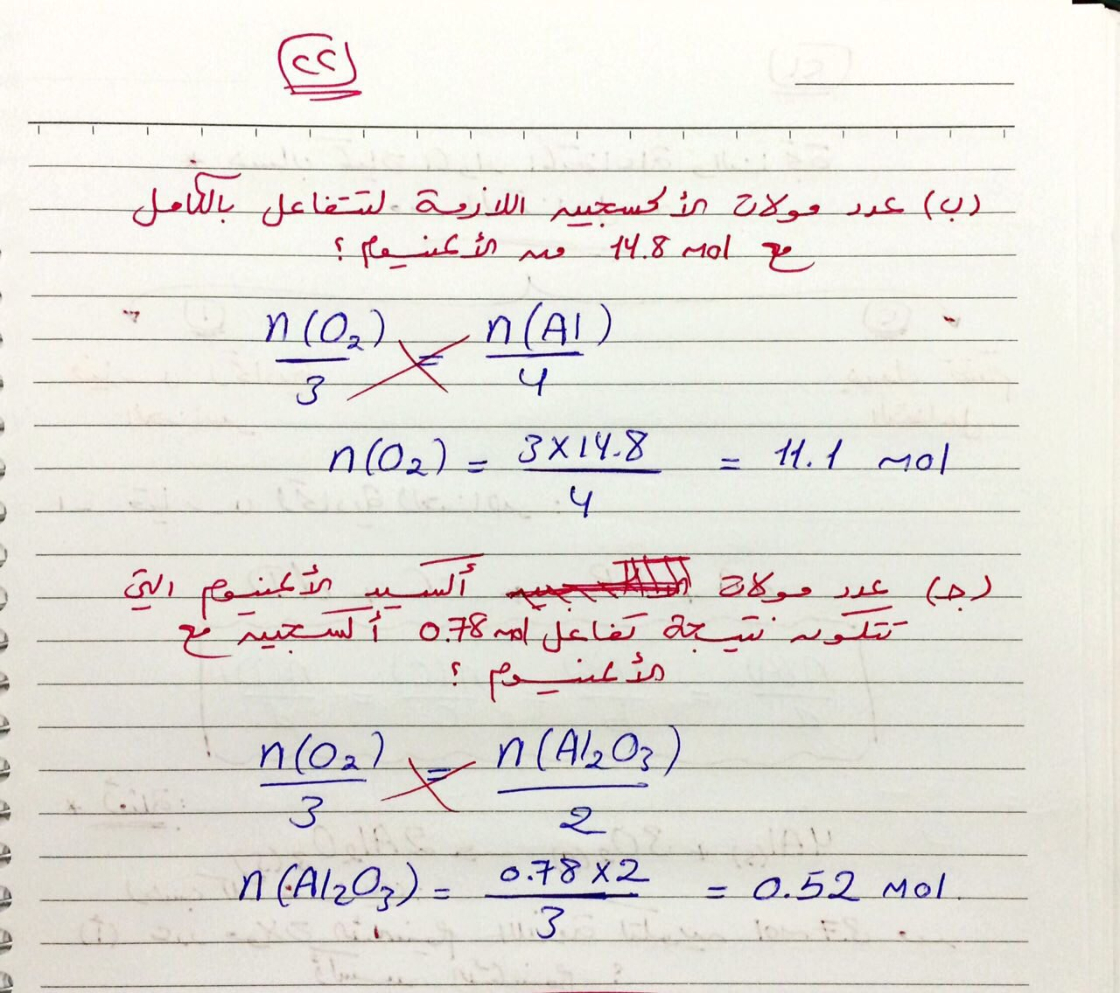 ٢٢
(ب) عدد مولات الأكسجين اللازمة لتتفاعل بالكامل
مع 14.8 mol من الألمنيوم ؟
n(O₂)/3 = n(Al)/4
n(O₂) = 3×14.8/4 = 11.1 mol
(ج) عدد مولات أكسيد الألمنيوم التي
تتكون نتيجة تفاعل 0.78 mol أكسجين مع
الألمنيوم ؟
n(O₂)/3 = n(Al₂O₃)/2
n(Al₂O₃) = 0.78×2/3 = 0.52 mol